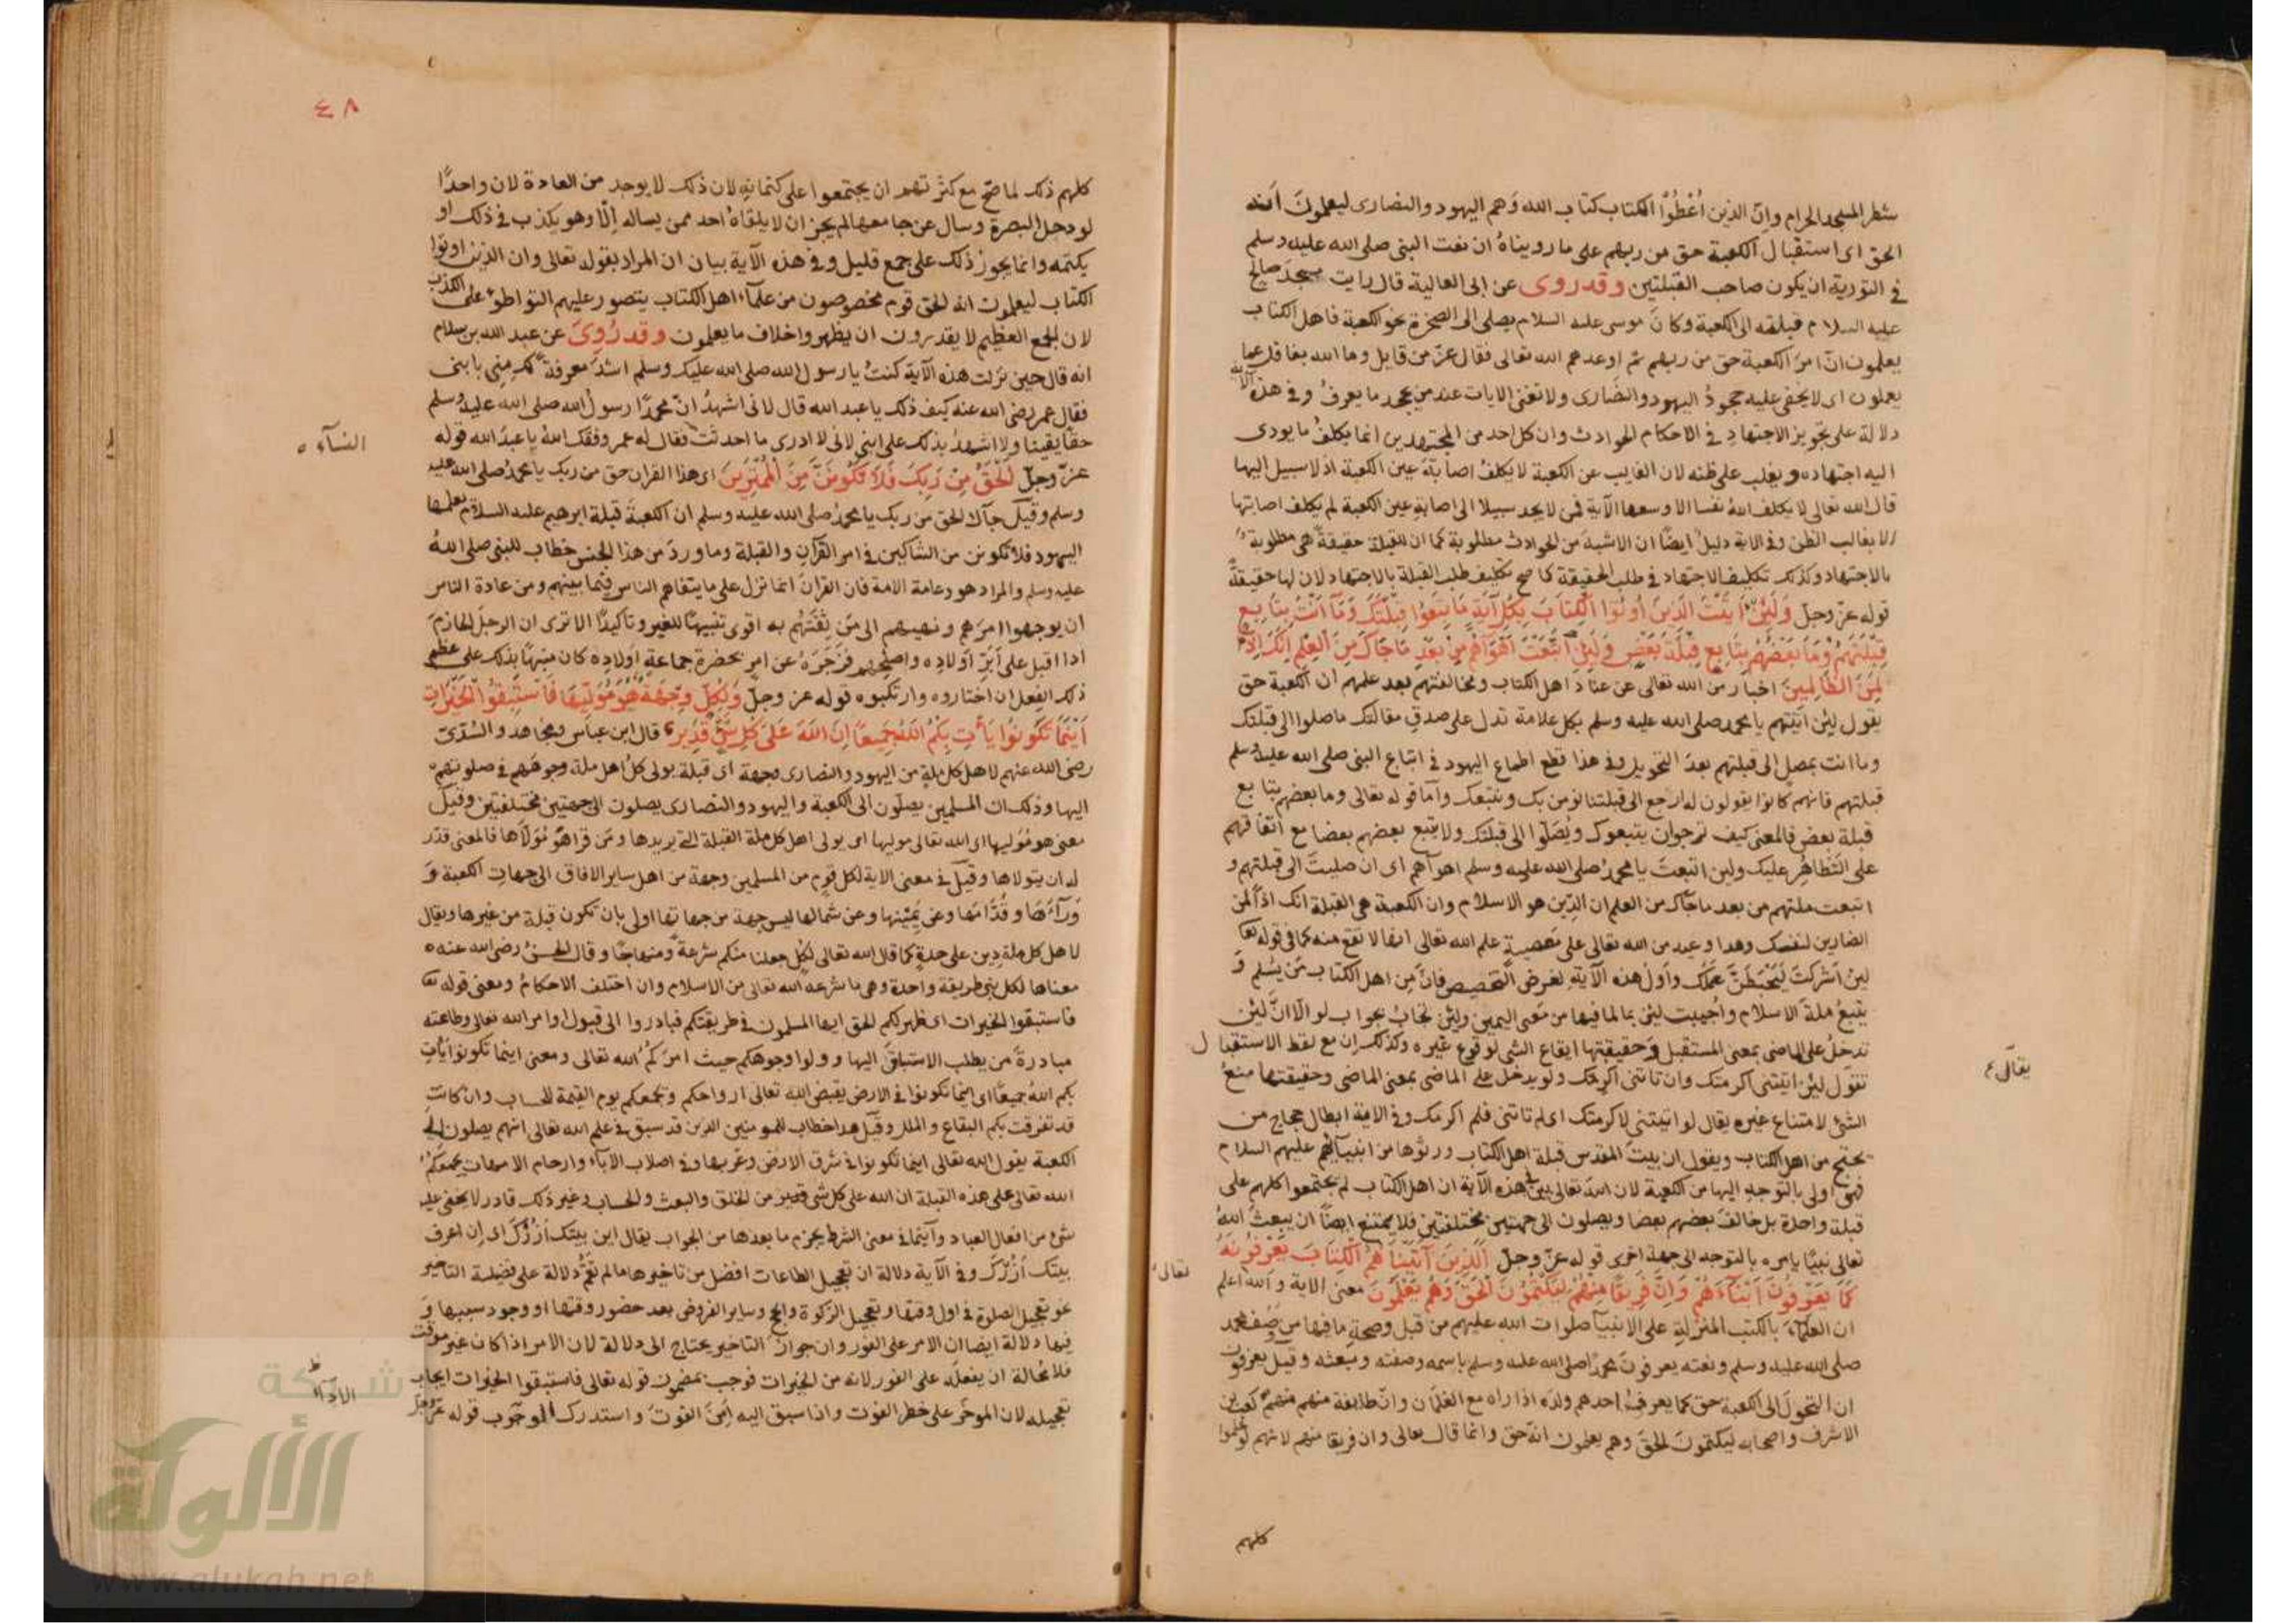 شطر المسجد الحرام وانّ الذين اُعْطُوُا الكتاب كتاب الله وَهم اليهود والنصارى ليعلمونَ اَنه
الحق اى استقبال الكعبة حق من ربهم على ما رويناهُ ان نعت النبى صلى الله عليه وسلم
فى التورية ان يكون صاحب القبلتين وقد روى عن ابى العالية قال رايت مسجدَ صالح
عليه السلام قبلته الى الكعبة وكانَ موسى عليه السلام يصلى الى الصخرة نحو الكعبة فاهل الكتاب
يعلمون انّ امرَ الكعبة حق من ربهم ثم اوعدهم الله تعالى فقال عزّ من قايل وما الله بغافل عما
يعملون اى لا يخفى عليه جحودُ اليهود والنصَارى ولا تغنى الايات عند من يجحد ما يعرفُ وفى هذه الآية
دلالة على تجويز الاجتهادِ فى الاحكام الحوادث وان كل احد من المجتهدين انما يكلفُ ما يودى
اليه اجتهاده ويغلب على ظنه لان الغايب عن الكعبة لا يكلفُ اصابَة عين الكعبة اذ لا سبيل اليها
قال الله تعالى لا يكلف اللهُ نفسا الا وسعها الآية فمن لا يجد سبيلا الى اصابةِ عين الكعبة لم يكلف اصابتها
الا بغالب الظن وفى الاية دليلٌ ايضًا ان الاشبهَ من الحوادث مطلوبة كما ان للقبلة حقيقةً هى مطلوبة
بالاجتهاد وكذلك تكليف الاجتهاد فى طلب الحقيقة كما صح تكليف طلب القبلة بالاجتهاد لان لها حقيقةً
قوله عزّ وجلّ وَلَئِنْ اَتَيْتَ الَّذِينَ اُوتُوا الْكِتَابَ بِكُلِّ آيَةٍ مَا تَبِعُوا قِبْلَتَكَ وَمَا اَنْتَ بِتَابِعٍ
قِبْلَتَهُمْ وَمَا بَعْضُهُمْ بِتَابِعٍ قِبْلَةَ بَعْضٍ وَلَئِنِ اتَّبَعْتَ اَهْوَآءَهُمْ مِنْ بَعْدِ مَا جَآكَ مِنَ الْعِلْمِ اِنَّكَ اِذًا
لَمِنَ الظَّالِمِينَ اخبار منَ الله تعالى عن عنادَ اهل الكتاب ومخالفتهم بعد علمهم ان الكعبة حق
يقول لئن اتيتهم يا محمد صلى الله عليه وسلم بكل علامة تدل على صدقِ مقالتك ما صلوا الى قبلتك
وما انت بمصلٍ الى قبلتهم بعدَ التحويل وفى هذا قطع اطماع اليهود فى اتباع النبى صلى الله عليه وسلم
قبلتهم فانهم كانوا يقولون له ارجع الى قبلتنا نؤمن بك ونتبعك وآما قوله تعالى وما بعضهم بتابع
قبلة بعض فالمعنى كيف ترجوان يتبعوك ويُصَلّوا الى قبلتك ولا يتبع بعضهم بعضا مع اتفاقهم
على التَظاهُرِ عليك ولين اتبعتَ يا محمدُ صلى الله عليه وسلم اهوآهم اى ان صليتَ الى قبلتهم و
اتبعت ملتهم من بعد ما جآك من العلم ان الدّين هو الاسلام وان الكعبة هى القبلة انك اذًا لمن
الضارين لنفسك وهذا وعيد من الله تعالى على مَعصيةٍ علم الله تعالى انها لا تقع منه كما فى قوله تعا
لين اَشركتَ لَيَحْبَطَنَّ عَمَلُكَ واَولُ هذه الآية لغرض التخصيص فانَّ مِن اهل الكتاب مَن يُسْلِم وَ
يتبعُ ملةَ الاسلام واُجيبت لين بما لما فيها من معَنى اليمين ولين تجابُ بجواب لو الّا انَّ لئِن
تدخلُ على الماضى بمعنى المستقبل وَحقيقتها ايقاع الشى لوقوع غيره وكذلك ان مع لفظ الاستقبال
تقول لين اتيتنى اكرمتك وان تاتنى اكرمك ولو يدخل على الماضى بمعنى الماضى وحقيقتها منعُ
الشئ لامتناع غيره يقال لو اتيتنى لاكرمتك اى لم تاتنى فلم اكرمك وفى الاية ابطال حجاج من
يحتج من اهل الكتاب ويقول ان بيتَ المقدس قبلة اهل الكتاب ورثوها من انبيآئهم عليهم السلام
فهى اولى بالتوجه اليها من الكعبة لان الله تعالى بين فى هذه الآية ان اهل الكتاب لم يجتمعوا كلهم على
قبلة واحدة بل خالفَ بعضهم بعضا ويصلون الى جهتين مختلفتين فلا يمتنع ايضًا ان يبعثَ اللهُ
تعالى نبيًا يامره بالتوجه الى جهة اخرى قوله عزّ وجلّ اَلَّذِينَ آتَيْنَاهُمُ الْكِتَابَ يَعْرِفُونَهُ
كَمَا يَعْرِفُونَ اَبْنَآءَهُمْ وَاِنَّ فَرِيقًا مِنْهُمْ لَيَكْتُمُونَ الْحَقَّ وَهُمْ يَعْلَمُونَ معنى الاية والله اعلم
ان العلمآءَ بالكتب المنزلةِ على الانبيآ صلوات الله عليهم من قبل وصحةِ ما فيها من وَصْف محمد
صلى الله عليه وسلم ونعته يعرفونَ محمدًا صلى الله عليه وسلم باسمه وصفته ومبعثه وقيل يعرفون
ان التحولَ الى الكعبة حق كما يعرف احدهم ولدَه اذا راه مع الغلمان وانّ طايفة منهم منهم كعب بن
الاشرف واصحابه ليكتمونَ الحقَ وهم يعلمون انه حق وانما قال تعالى وان فريقا منهم لانهم لو علموا
كلهم
تعالى
يقال
٤٨
كلهم ذلك لما صَحّ مع كثرتهم ان يجتمعوا على كتمانهِ لان ذلك لا يوجد من العادة لان واحدًا
لو دخل البصرة وسال عن جامعها لم يجز ان لا يلقاهُ احد ممن يساله إلّا وهو يكذب فى ذلك او
يكتمه وانما يجوز ذلك على جمع قليل وفى هذه الآية بيان ان المراد بقوله تعالى وان الذين اوتوا
الكتاب ليعلمون انه الحق قوم مخصوصون من علمآء اهل الكتاب يتصور عليهم التواطؤ على الكذب
لان الجمع العظيم لا يقدرون ان يظهروا خلاف ما يعلمون وقد رُوِىَ عن عبد الله بن سلام
انه قال حين نزلت هذه الآية كنتُ يا رسول الله صلى الله عليك وسلم اشدَّ معرفةً بك مِنِّى بابنى
فقال عمر رضى الله عنه كيف ذلك يا عبد الله قال لانى اشهدُ انّ محمدًا رسولُ الله صلى الله عليه وسلم
حقًا يقينا ولا اشهدُ بذلك على ابنى لانى لا ادرى ما احدثت فقال له عمر وفقك اللهُ يا عبدَ الله قوله
النسآء
عزّ وجلّ اَلْحَقُّ مِنْ رَبِّكَ فَلَا تَكُونَنَّ مِنَ الْمُمْتَرِينَ اى هذا القران حق من ربك يا محمدُ صلى الله عليه
وسلم وقيل جآك الحق من ربك يا محمدُ صلى الله عليه وسلم ان الكعبةَ قبلة ابرهيم عليه السلام يعلمها
اليهود فلا تكونن من الشاكين فى امر القرآنِ والقبلة وما وردَ من هذا الجنس خطاب للنبى صلى اللهُ
عليه وسلم والمراد هو وعامة الامة فان القرانَ انما نزل على ما يتفاهم الناس فيما بينهم ومن عادة الناس
ان يوجهوا امرَهم ونهيهم الى مَن يثقتهُم به اقوى تنبيهًا للغير وتاكيدًا الا ترى ان الرجلَ الحازمَ
اذا اقبل على اَبَرِّ اَولادِه واصلحهم فزجَرَهُ عن امرٍ بحضرة جماعةِ اَولاده كان منبهًا بذلك على عظم
ذلك الفِعل ان اختاروه وارتكبوه قوله عز وجلّ وَلِكُلٍّ وِجْهَةٌ هُوَ مُوَلِّيهَا فَاسْتَبِقُوا الْخَيْرَاتِ
اَيْنَمَا تَكُونُوا يَأْتِ بِكُمُ اللهُ جَمِيعًا اِنَّ اللهَ عَلَى كُلِّ شَىْءٍ قَدِيرٌ قال ابن عباس ومجاهد والسُدّى
رضى الله عنهم لاهل كل ملةٍ من اليهود والنصارى وجهة اى قبلة يولى كلُ اهل ملة وجوهَهم فى صلوتهم
اليها وذلك ان المسلمين يصلّون الى الكعبة واليهود والنصارى يصلون الى جهتين مختلفتين وقيل
معنى هو مُوَليها اى الله تعالى موليها اى يولى اهل كل ملة القبلة التى يريدها ومَن قرا هوَ مُوَلّاها فالمعنى قدّر
له ان يتولاها وقيلَ فى معنى الاية لكل قومٍ من المسلمين وجهة من اهل ساير الافاق الى جهاتِ الكعبة وَ
وَرآءَها وقُدّامها وعن يَمِيْنها وعن شمالها ليس جهة من جهاتها اولى بان تكون قبلة من غيرها ويقال
لاهل كل ملة دين على حدةٍ كما قال الله تعالى لكلٍ جعلنا منكم شرعةً ومنهاجًا وقال الحسنُ رضى الله عنه
معناها لكل نبى طريقة واحدة وهى ما شرعه الله تعالى من الاسلام وان اختلف الاحكامُ ومعنى قوله تعا
فاستبقوا الخيرات اى ظهر لكم الحق ايها المسلمون فى طريقتكم فبادروا الى قبول اوامر الله تعالى وطاعته
مبادرةَ من يطلب الاستباقَ اليها وولوا وجوهكم حيث امرَكمُ الله تعالى ومعنى اينما تكونوا يأت
بكم اللهُ جميعًا اى اينما تكونوا فى الارض يقبض الله تعالى ارواحكم ويجمعكم يوم القيمة للحساب وان كانت
قد تفرقت بكم البقاع والملل وقيل هذا خطاب للمومنين الذين قد سبق فى علم الله تعالى انهم يصلون الى
الكعبة يقول الله تعالى اينما تكونوا فى شرق الارض وغربها وفى اصلاب الآبآء وارحام الامهات يجمعكمُ
الله تعالى على هذه القبلة ان الله على كل شى قدير من الخلق والبعث والحساب وغير ذلك قادر لا يخفى عليه
شئ من افعال العباد وآينما فى معنى الشرط يجزم ما بعدها من الجواب يقال اين بيتك اَزُرْكَ اى إن اعرف
بيتك اَزُرْكَ وفى الآية دلالة ان تعجيل الطاعات افضل من تاخيرها ما لم تقم دلالة على فضيلة التاخير
نحو تعجيل الصلوة فى اول وقتها وتعجيل الزكوة والحج وساير الفروض بعد حضور وقتها او وجود سببها وَ
فيها دلالة ايضا ان الامر على الفور وان جوازَ التاخير يحتاج الى دلالة لان الامر اذا كان غير موقت
فلا محالة ان يفعلَه على الفور لانه من الخيرات فوجب بمضمون قوله تعالى فاستبقوا الخيرات ايجاب
تعجيله لان الموخَر على خطر الفوت واذا سبق اليه اَمِنَ الفوتَ واستدرك الوجوب قوله عزّ وجلّ
شبكة
الألوكة
www.alukah.net